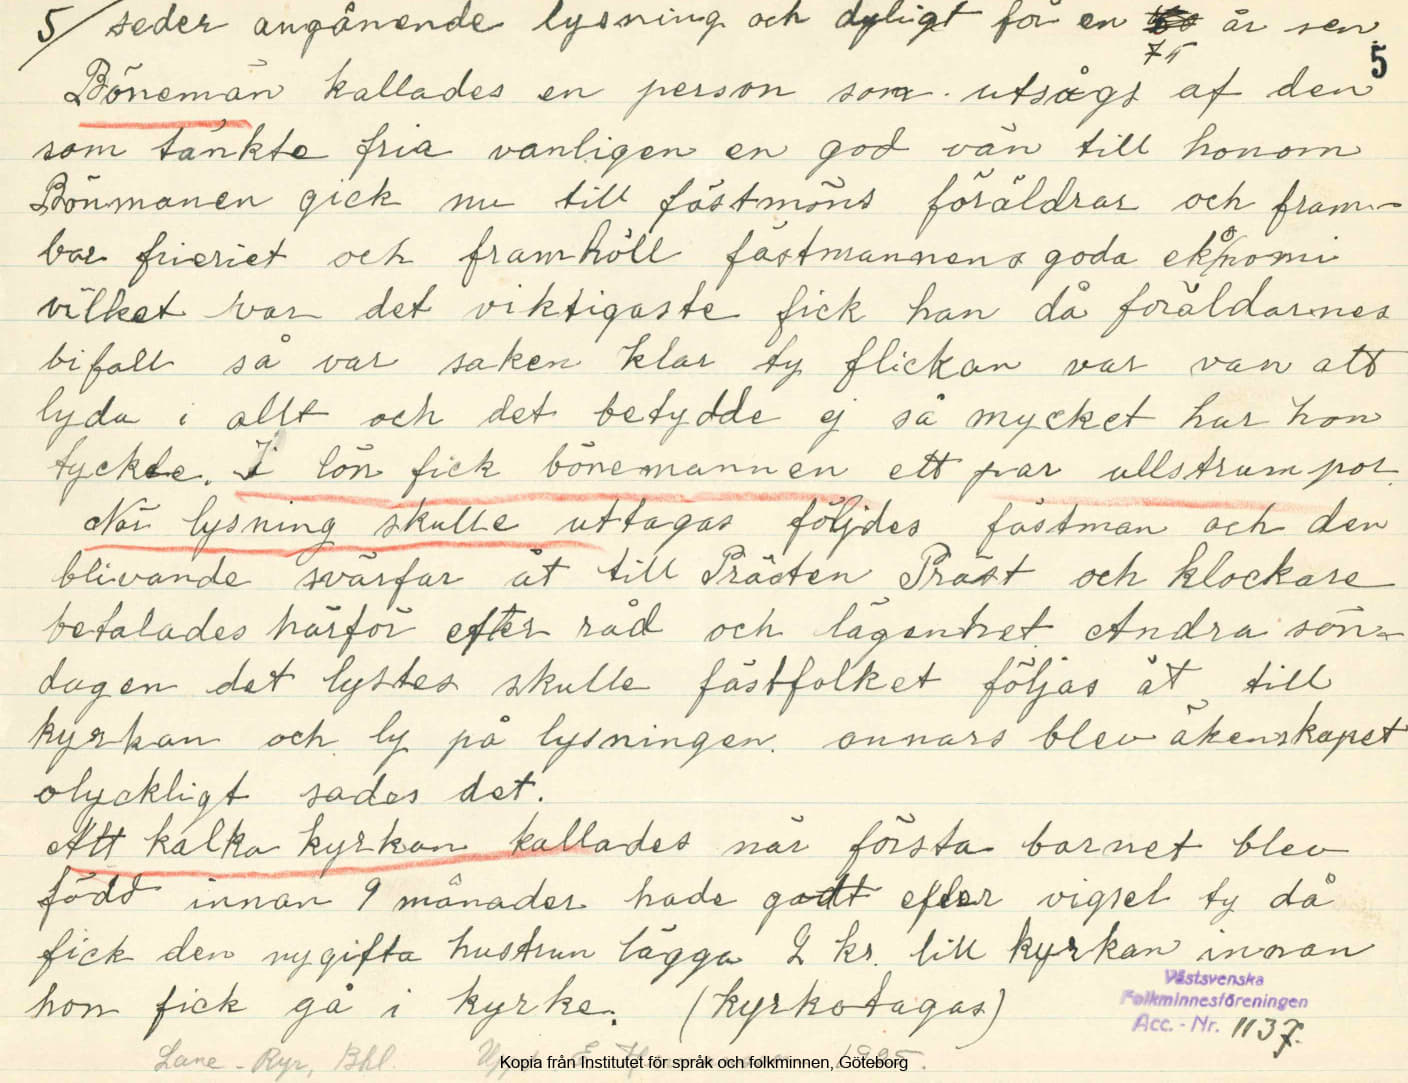 5/ seder angånende lysning och dyligt för en 75 år sen
5
Bönemän kallades en person som utsågs af den
som tänkte fria vanligen en god vän till honom
Bönmanen gick nu till fästmöns föräldrar och fram-
bar frieriet och framhöll fästmannens goda ekånomi
vilket var det viktigaste fick han då föräldarnes
bifall så var saken klar ty flickan var van att
lyda i allt och det betydde ej så mycket hur hon
tyckte. I lön fick bönemannen ett par ullstrumpor.
När lysning skulle uttagas följdes fästman och den
blivande svärfar åt till Prästen Präst och klockare
betalades härför efter råd och lägenhet Andra sön-
dagen det lystes skulle fästfolket följas åt till
kyrkan och ly på lysningen annars blev äkenskapet
olyckligt sades det.
Att kalka kyrkan kallades när första barnet blev
född innan 9 månader hade gådt efter vigsel ty då
fick den nygifta hustrun lägga 2 kr. till kyrkan innan
hon fick gå i kyrke. (kyrkotagas)
Västsvenska
Folkminnesföreningen
Acc. - Nr. 1137.
Lane-Ryr, Bhl. 1925.
Kopia från Institutet för språk och folkminnen, Göteborg